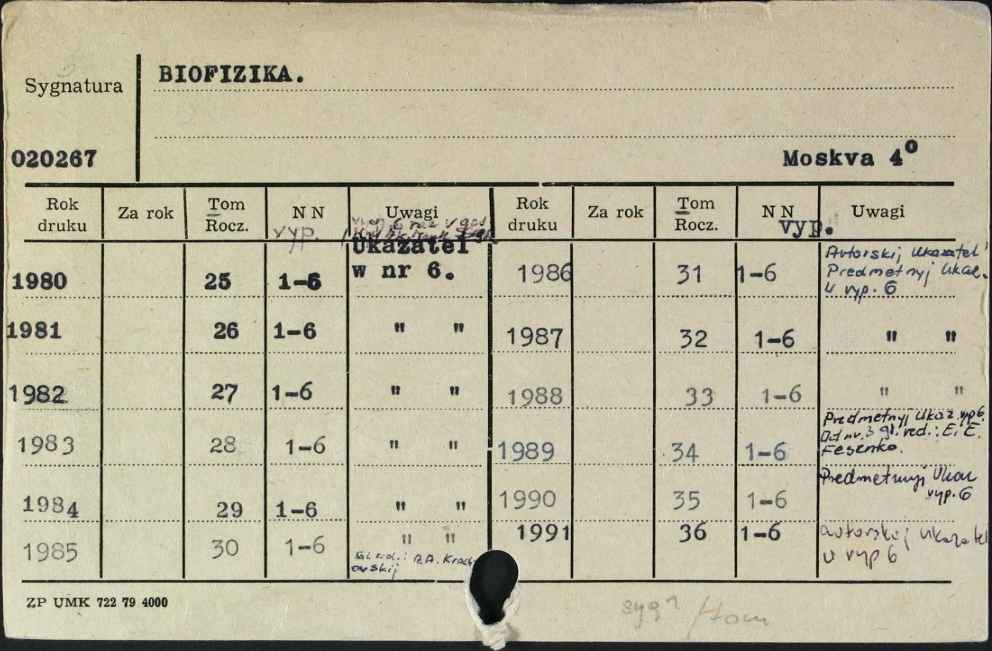 BIOFIZIKA.
Sygnatura
020267
Moskva 4°
Rok druku Za rok Tom Rocz. N N vyp. Uwagi Rok druku Za rok Tom Rocz. N N vyp. Uwagi
1980 25 1-6 Ukazatel w nr 6.
1981 26 1-6 " "
1982 27 1-6 " "
1983 28 1-6 " "
1984 29 1-6 " "
1985 30 1-6 " "
1986 31 1-6 Avtorskij Ukazatel' Predmetnyj Ukaz. v vyp. 6
1987 32 1-6 " "
1988 33 1-6 " "
1989 34 1-6 Predmetnyj Ukaz vyp 6. Od nr. 3 gł. red.: E. E. Fesenko.
1990 35 1-6 Predmetnyj Ukaz vyp. 6
1991 36 1-6 avtorskij ukazatel v vyp 6
ZP UMK 722 79 4000